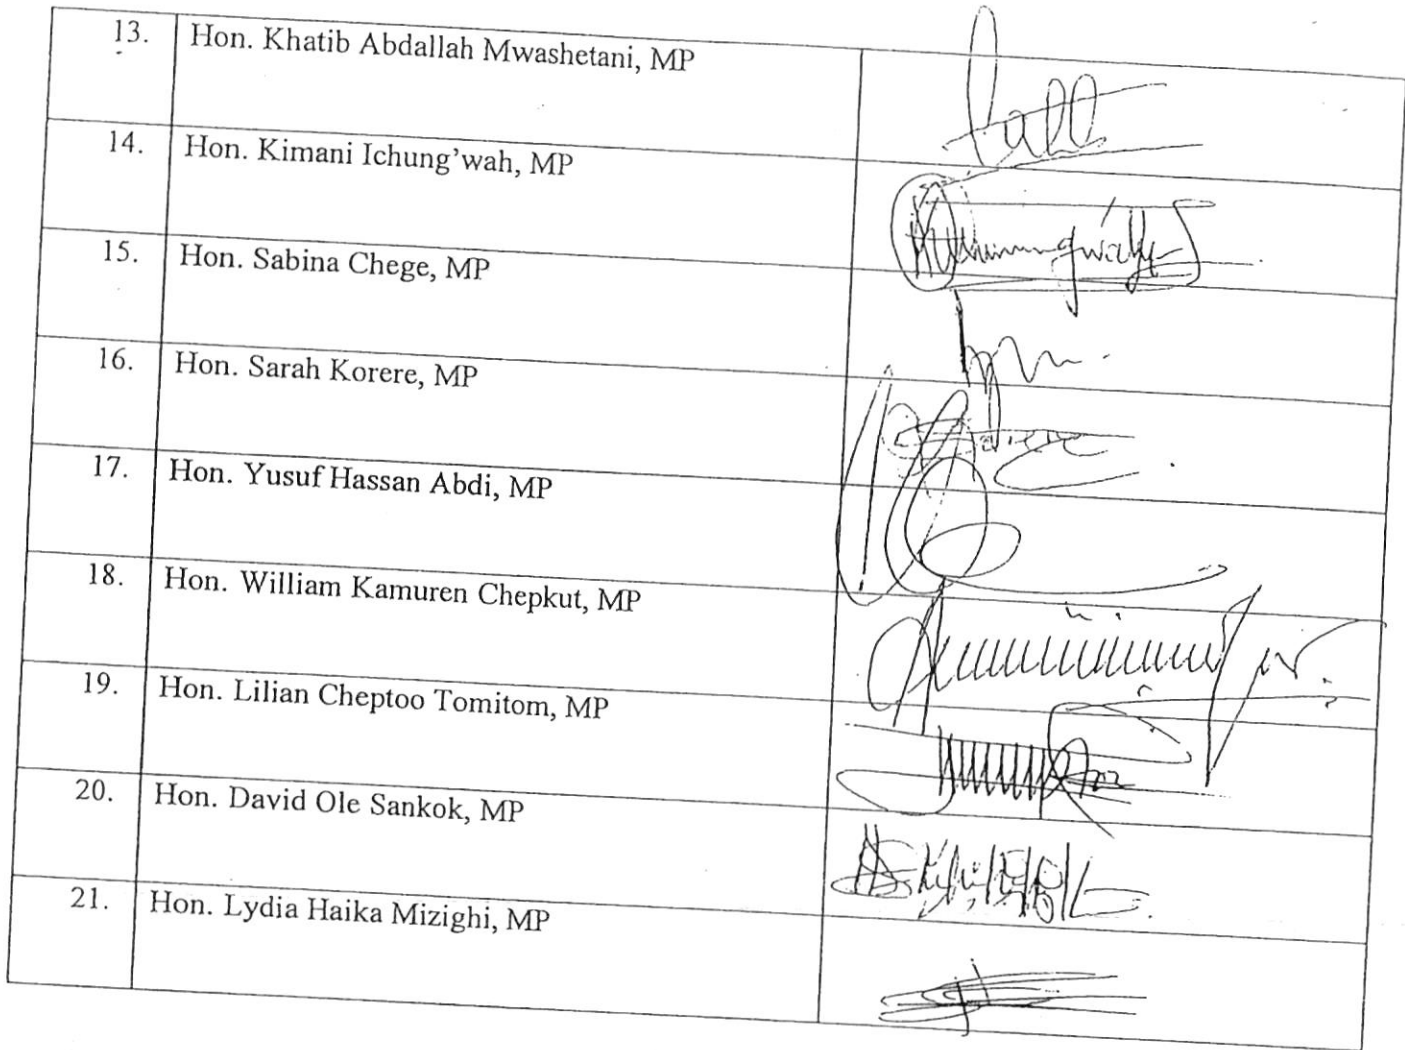 13. Hon. Khatib Abdallah Mwashetani, MP
14. Hon. Kimani Ichung'wah, MP
15. Hon. Sabina Chege, MP
16. Hon. Sarah Korere, MP
17. Hon. Yusuf Hassan Abdi, MP
18. Hon. William Kamuren Chepkut, MP
19. Hon. Lilian Cheptoo Tomitom, MP
20. Hon. David Ole Sankok, MP
21. Hon. Lydia Haika Mizighi, MP